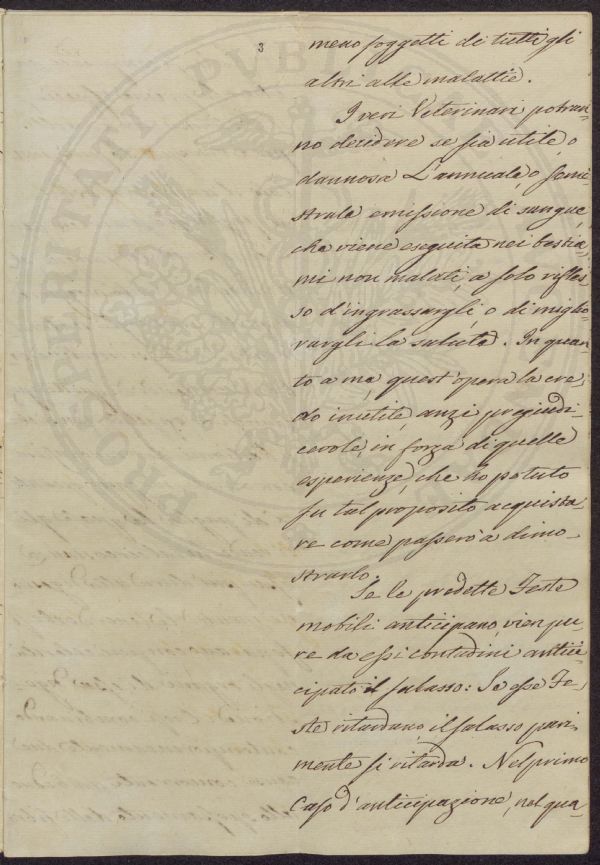 3
meno soggetti di tutti gli
altri alle malattie.
I veri Veterinari potran-
no decidere se sia utile, o
dannosa L'annuale, o seme-
strale emissione di sangue,
che viene eseguita nei bestia-
mi non malati, a solo rifles-
so d'ingrassargli, o di miglio-
rargli la salute. In quan-
to a me, quest'opera la cre-
do inutile, anzi pregiudi-
cevole, in forza di quelle
esperienze, che ho potuto
su tal proposito acquista-
re come passerò a dimo-
strarlo.
Se le predette Feste
mobili anticipano, vien pu-
re da essi contadini antici-
cipato il salasso: Se esse Fe-
ste ritardano, il salasso pari-
mente si ritarda. Nel primo
Caso d'anticipazione, nel qua-
PROSPERITATI PUBLI